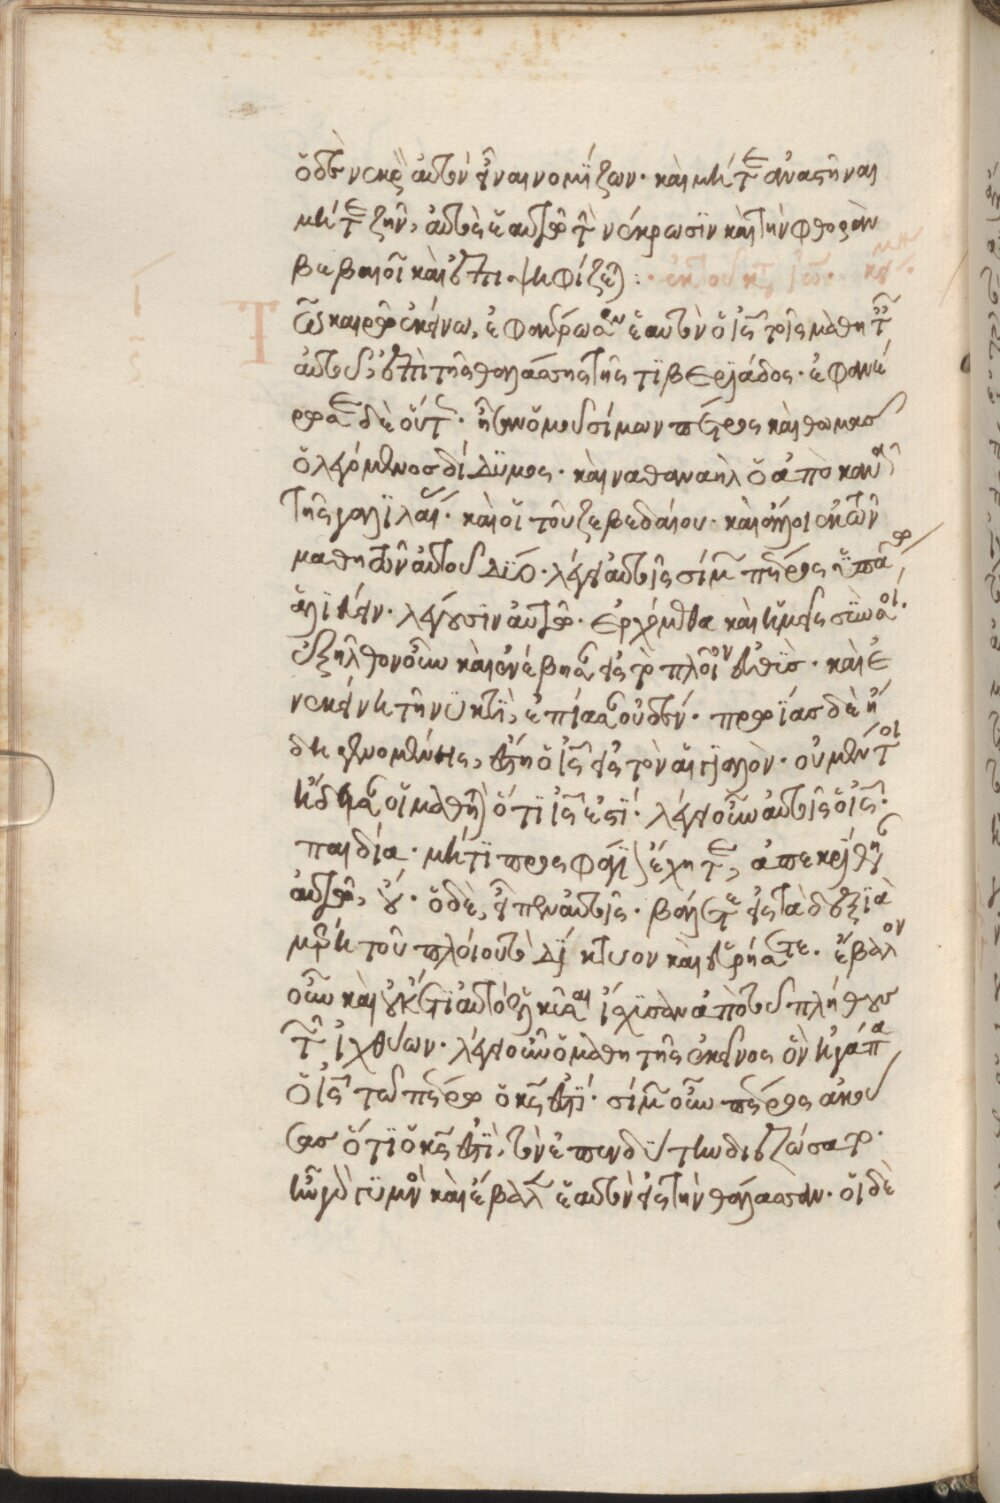 ὅδὲ νεκρὸν αὐτὸν εἶναι νομίζων· καὶ μήτε ἀναστῆναι
μήτε ζῆν, αὐτὸς ἑαυτῷ τὴν νέκρωσιν καὶ τὴν φθορὰν
βεβαιοῖ καὶ ἐπιψηφίζεται:· ἐκ τοῦ κτ ἰω·
Τ
ῷ καιρῷ ἐκείνω, ἐφανέρωσεν ἑαυτὸν ὁ ις τοῖς μαθητ
αὐτοῦ, ἐπὶ τῆς θαλάσσης τῆς τϊβερϊάδος· ἐφανέ
ρωσε δὲ οὕτ· ἦσαν ὁμοῦ σίμων πέτρος καὶ θωμασ
ὁ λεγόμενοσ δίδυμος· καὶ ναθαναὴλ ὁ ἀπὸ κανᾶ
τῆς γαλϊλαί· καὶ οἱ τοῦ ζεβεδαίου· καὶ ἄλλοι ἐκ τῶν
μαθητῶν αὐτοῦ δϊο· λέγει αὐτοῖς σίμ πέτρος ὑπάγω
ἁλϊεύειν· λέγουσϊν αὐτῷ· ἐρχόμεθα καὶ ἡμεῖς σὺν σοί·
ἐξῆλθον οὖν καὶ ἐνέβησαν εἰς τὸ πλοῖον εὐθϊσ· καὶ ἐ
ν ἐκείνη τῆ νϋκτϊ, ἐπίασαν οὐδέν· πρωϊασ δὲ ἤ
δη γενομένης, ἔστη ὁ ις εἰς τὸν αἰγϊαλὸν· οὐ μέντοι
ἤδησαν οἱ μαθηταὶ ὅτϊ ις ἐστϊ· λέγει οὖν αὐτοῖς ὁ ις·
παιδία· μήτϊ προσφάγϊον ἔχητε, ἀπεκρίθησαν
αὐτῷ, οὔ· ὁ δὲ, εἶπεν αὐτοῖς· βάλετε εἰς τὰ δεξϊὰ
μέρη τοῦ πλοίου τὸ δίκτυον καὶ εὑρήσετε· ἔβαλον
οὖν καὶ οὐκ ἔτι αὐτὸ ἑλκῦσαι ἴσχϊσαν ἀπὸ τοῦ πλήθουσ
τῶν ἰχθύων· λέγει οὖν ὁ μαθητὴς ἐκεῖνος ὃν ἠγάπα
ὁ ις τῶ πέτρω ὁ κς ἐστϊ· σίμ οὖν πέτρος ἀκού
σασ ὅτϊ ὁ κς ἐστϊ, τὸν ἐπενδύτην διεζώσατο·
ἦν γὰρ γϋμνὸς καὶ ἔβαλεν ἑαυτὸν εἰς τὴν θάλασσαν· οἱ δὲ